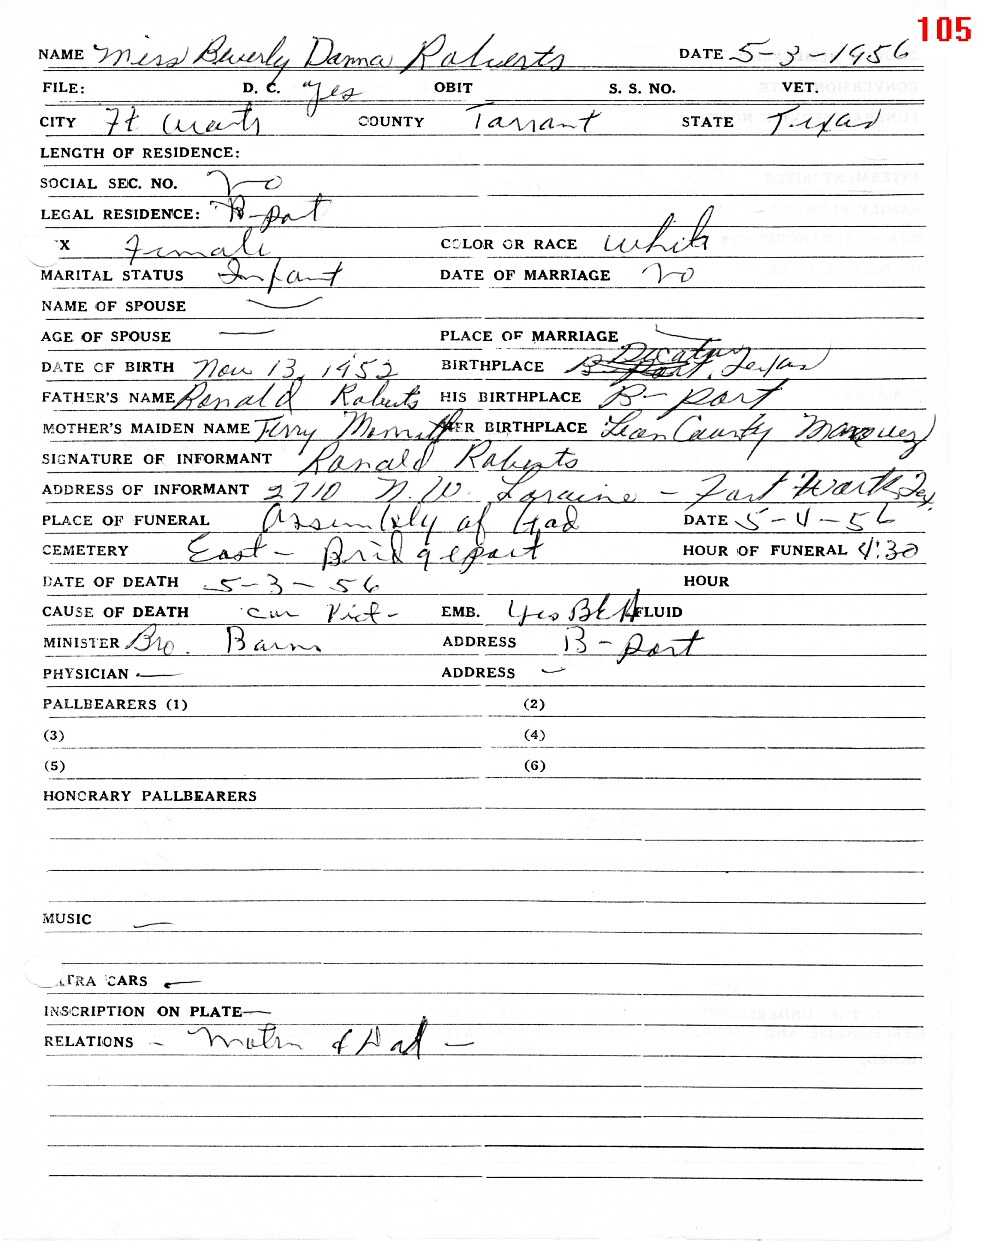 105
NAME Miss Beverly Danna Roberts DATE 5-3-1956
FILE: D. C. yes OBIT S. S. NO. VET.
CITY Ft Worth COUNTY Tarrant STATE Texas
LENGTH OF RESIDENCE:
SOCIAL SEC. NO. no
LEGAL RESIDENCE: B-port
X Female COLOR OR RACE White
MARITAL STATUS Infant DATE OF MARRIAGE no
NAME OF SPOUSE —
AGE OF SPOUSE — PLACE OF MARRIAGE —
DATE OF BIRTH Nov 13, 1952 BIRTHPLACE Decatur, Texas
FATHER'S NAME Ronald Roberts HIS BIRTHPLACE B-port
MOTHER'S MAIDEN NAME Terry HER BIRTHPLACE Leon County Marquez
SIGNATURE OF INFORMANT Ronald Roberts
ADDRESS OF INFORMANT 2710 N.W. Loraine - Fort Worth, Tex.
PLACE OF FUNERAL Assembly of God DATE 5-4-56
CEMETERY East - Bridgeport HOUR OF FUNERAL 4:30
DATE OF DEATH 5-3-56 HOUR
CAUSE OF DEATH Car Vict- EMB. yes FLUID
MINISTER Bro. ADDRESS B-port
PHYSICIAN — ADDRESS —
PALLBEARERS (1) (2)
(3) (4)
(5) (6)
HONORARY PALLBEARERS
MUSIC —
TRA CARS —
INSCRIPTION ON PLATE —
RELATIONS - Mother & Dad -